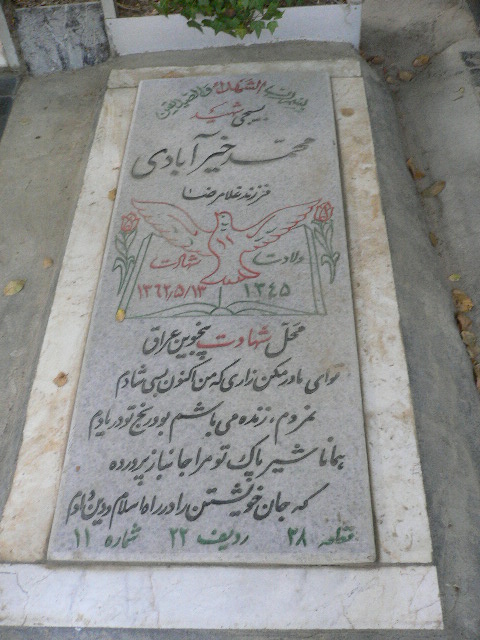 بسم رب الشهداء والصدیقین
بسیجی شهید
محمد خیرآبادی
فرزند غلامرضا
ولادت
شهادت
۱۳۴۵
۱۳۶۲/۵/۱۳
محل شهادت پنجوین عراق
تو ای مادر مکن زاری که من اکنون بسی شادم
نمردم، زنده می باشم بود رنج تو در یادم
همانا شیر پاک تو مرا جانباز پرورده
که جان خویشتن را در راه اسلام و دین دادم
قطعه ۲۸ ردیف ۲۲ شماره ۱۱